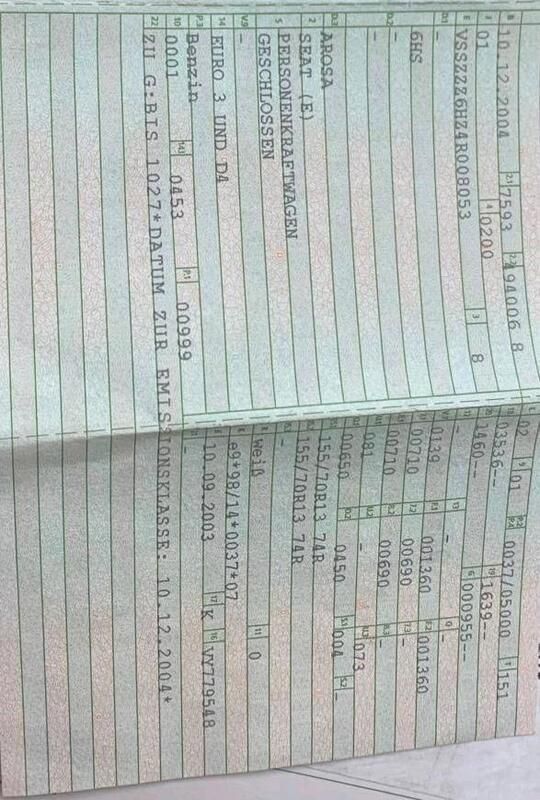 B 10.12.2004 2.1 7593 2.2 494006 8
J 01 4 0200 3 8
E VSSZZZ6HZ4R008053
D.1 -
6HS
D.2 -
-
D.3 AROSA
2 SEAT (E)
5 PERSONENKRAFTWAGEN
GESCHLOSSEN
V.9 -
14 EURO 3 UND D4
P.3 Benzin
10 0001 14.1 0453 P.1 00999
22 ZU G:BIS 1027*DATUM ZUR EMISSIONSKLASSE: 10.12.2004*
L 02 9 01 P.2 P.4 0037/05000 T 151
18 03536-- 19 1639--
20 1460-- G 000955--
12 - 13 - Q -
0139 001360 F.2 001360
00710 7.2 00690 7.3 -
00710 8.2 00690 8.3 -
081 U.2 - U.3 073
00650 O.2 0450 S.1 004 S.2 -
155/70R13 74R
155/70R13 74R
-
R weiß 11 0
K e9*98/14*0037*07
6 10.09.2003 17 K 16 VY779548
-